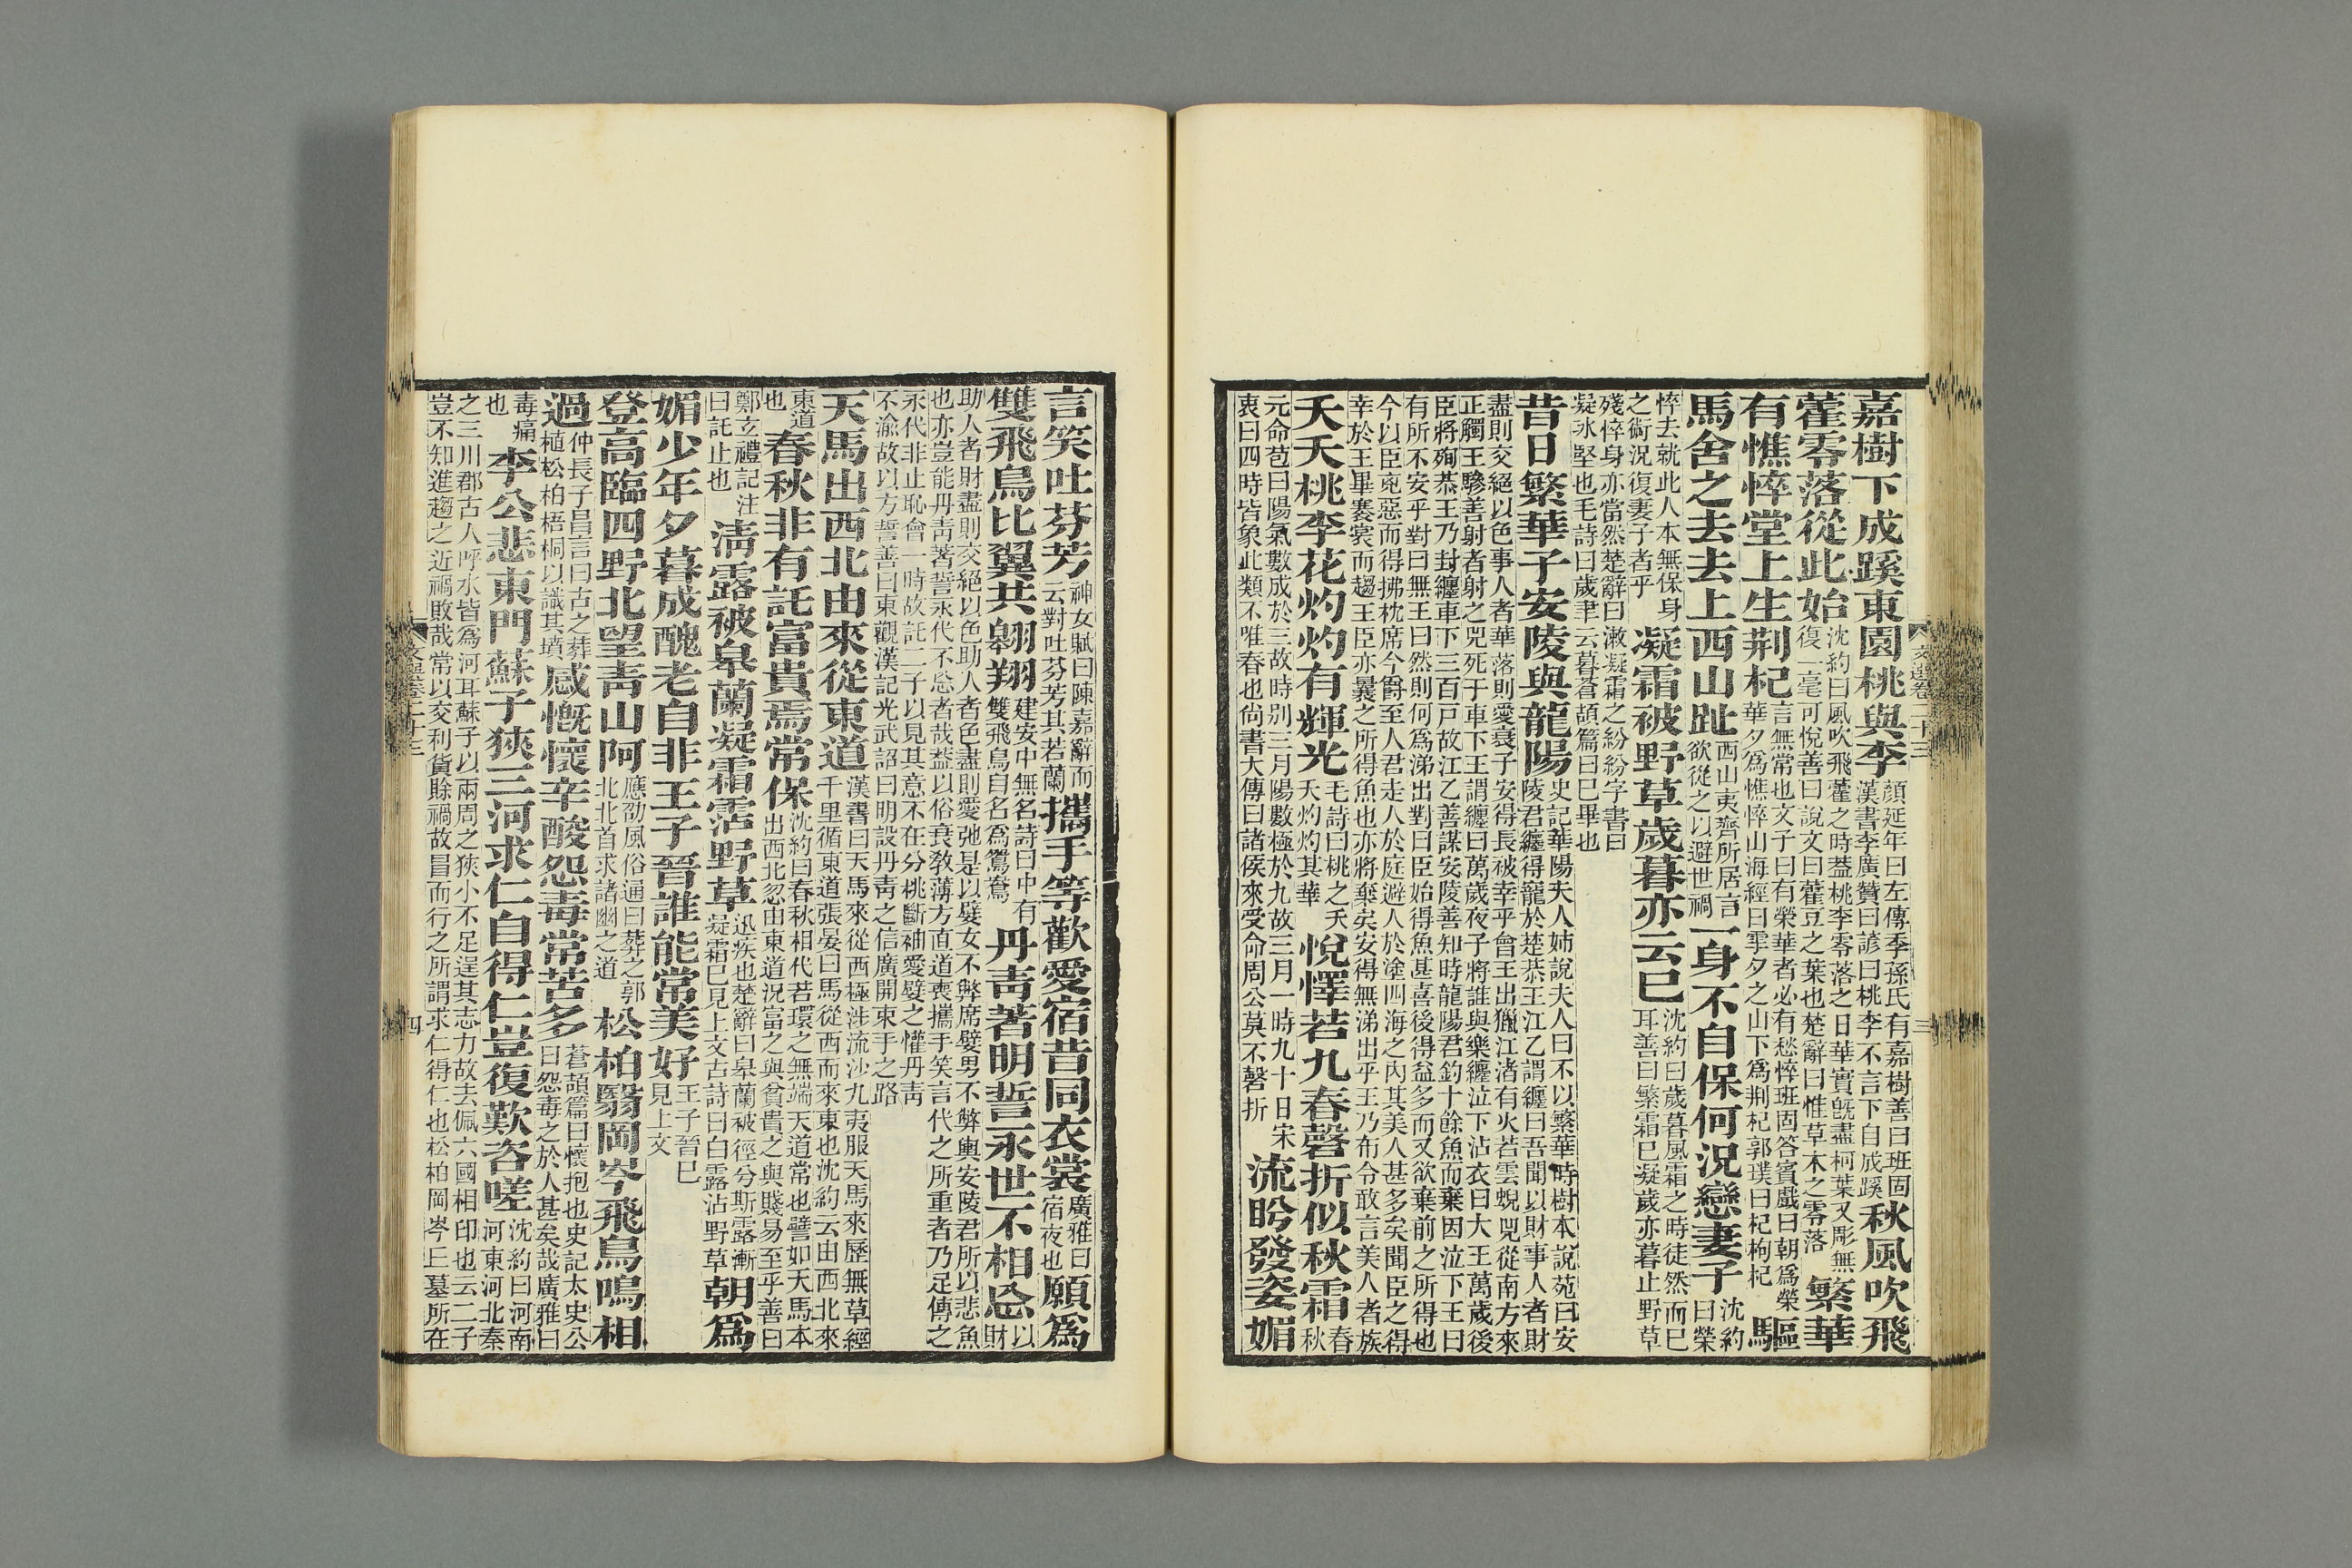 嘉樹下成蹊東園桃與李顏延年曰左傳季孫氏有嘉樹善曰班固漢書李廣贊曰諺曰桃李不言下自成蹊秋風吹飛
藿零落從此始沈約曰風吹飛藿之時葢桃李零落之日華實旣盡柯葉又彫無復一毫可悅善曰說文曰藿豆之葉也楚辭曰惟草木之零落繁華
有憔悴堂上生荆杞言無常也文子曰有榮華者必有愁悴班固答賓戲曰朝爲榮華夕爲憔悴山海經曰雩夕之山下爲荆杞郭璞曰杞枸杞驅
馬舍之去去上西山趾西山夷齊所居言欲從之以避世禍一身不自保何況戀妻子沈約曰榮
悴去就此人本無保身之術況復妻子者乎凝霜被野草歲暮亦云已沈約曰歲暮風霜之時徒然而已耳善曰繁霜已凝歲亦暮止野草
殘悴身亦當然楚辭曰漱凝霜之紛紛字書曰凝冰堅也毛詩曰歲聿云暮蒼頡篇曰已畢也
昔日繁華子安陵與龍陽史記華陽夫人姉說夫人曰不以繁華時樹本說苑曰安陵君纏得寵於楚恭王江乙謂纏曰吾聞以財事人者財
盡則交絕以色事人者華落則愛衰子安得長被幸乎會王出獵江渚有火若雲蜺兕從南方來正觸王驂善射者射之兕死于車下王謂纏曰萬歲夜子將誰與樂纏泣下沾衣曰大王萬歲後
臣將殉恭王乃封纏車下三百戸故江乙善謀安陵善知時龍陽君釣十餘魚而棄因泣下王曰有所不安乎對曰無王曰然則何爲涕出對曰臣始得魚甚喜後得益多而又欲棄前之所得也
今以臣㐫惡而得拂枕席今爵至人君走人於庭避人於塗四海之內其美人甚多矣聞臣之得幸於王畢褰裳而趨王臣亦曩之所得魚也亦將棄矣安得無涕出乎王乃布令敢言美人者族
夭夭桃李花灼灼有輝光毛詩曰桃之夭夭灼灼其華悅懌若九春磬折似秋霜春秋
元命苞曰陽氣數成於三故時别三月陽數極於九故三月一時九十日宋衷曰四時皆象此類不唯春也尚書大傳曰諸侯來受命周公莫不磬折流盻發姿媚
言笑吐芬芳神女賦曰陳嘉辭而云對吐芬芳其若蘭攜手等歡愛宿昔同衣裳廣雅曰宿夜也願爲
雙飛鳥比翼共翱翔建安中無名詩曰中有雙飛鳥自名爲鴛鴦丹靑著明誓永世不相忘以財
助人者財盡則交絕以色助人者色盡則愛弛是以嬖女不弊席嬖男不弊輿安陵君所以悲魚也亦豈能丹靑著誓永代不忘者哉葢以俗衰敎薄方直道喪攜手笑言代之所重者乃足傳之
永代非止恥會一時故託二子以見其意不在分桃斷袖愛嬖之懽丹靑不渝故以方誓善曰東觀漢記光武詔曰明設丹靑之信廣開束手之路
天馬出西北由來從東道漢書曰天馬來從西極涉流沙九夷服天馬來歷無草經千里循東道張晏曰馬從西而來東也沈約云由西北來
東道也春秋非有託富貴焉常保沈約曰春秋相代若環之無端天道常也譬如天馬本出西北忽由東道況富之與貧貴之與賤易至乎善曰
鄭玄禮記注曰託止也淸露被皋蘭凝霜霑野草迅疾也楚辭曰皋蘭被徑兮斯露漸凝霜已見上文古詩曰白露沾野草朝爲
媚少年夕暮成醜老自非王子晉誰能常美好王子晉已見上文
登高臨四野北望靑山阿應劭風俗通曰葬之郭北北首求諸幽之道松柏翳岡岑飛鳥鳴相
過仲長子昌言曰古之葬植松柏梧桐以識其墳感慨懷辛酸怨毒常苦多蒼頡篇曰懷抱也史記太史公曰怨毒之於人甚矣哉廣雅曰
毒痛也李公悲東門蘇子狹三河求仁自得仁豈復歎咨嗟沈約曰河南河東河北秦
之三川郡古人呼水皆爲河耳蘇子以兩周之狹小不足逞其志力故去佩六國相印也云二子豈不知進趨之近禍敗哉常以交利貨賒禍故冒而行之所謂求仁得仁也松柏岡岑丘墓所在
文選卷二十三
三
四